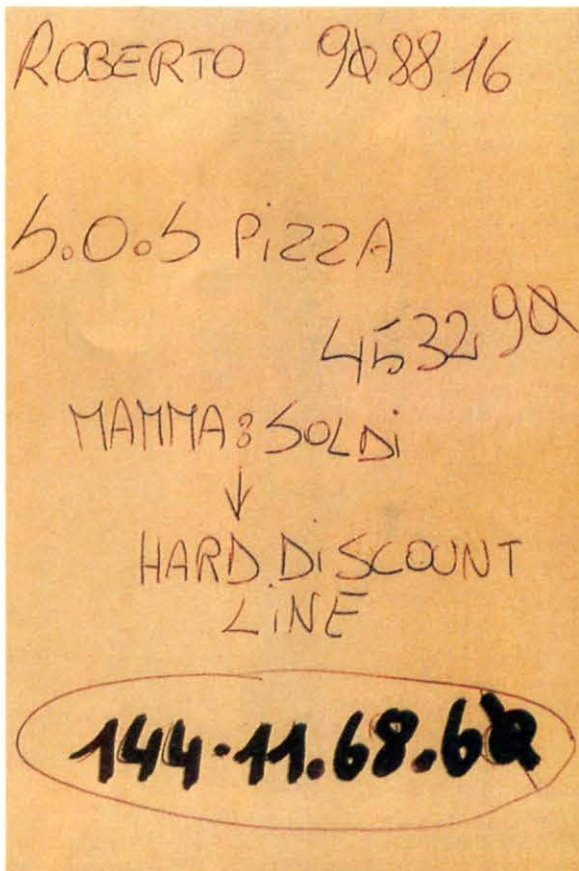 ROBERTO 908816
S.O.S PiZZA
453290
MAMMA: SOLDi
↓
HARD DiSCOUNT
LiNE
144-11.68.60